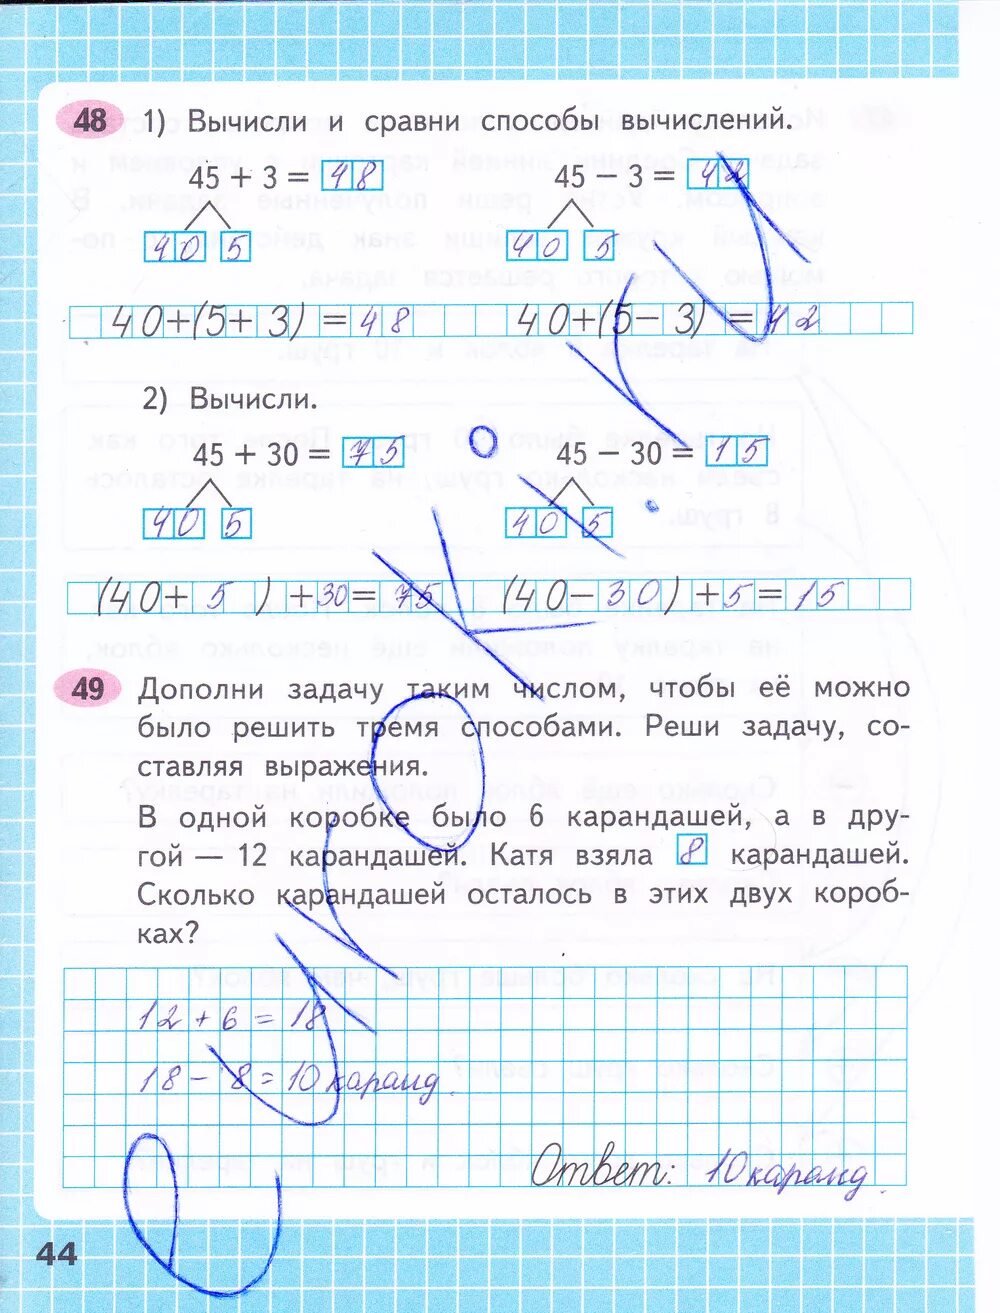 48 1) Вычисли и сравни способы вычислений.
45 + 3 = 48 45 − 3 = 42
40 5 40 5
40+(5+ 3) = 48 40+(5− 3) = 42
2) Вычисли.
45 + 30 = 75 45 − 30 = 15
40 5 40 5
(40+ 5 ) +30= 75 (40− 30 ) +5= 15
49 Дополни задачу таким числом, чтобы её можно
было решить тремя способами. Реши задачу, со-
ставляя выражения.
В одной коробке было 6 карандашей, а в дру-
гой — 12 карандашей. Катя взяла 8 карандашей.
Сколько карандашей осталось в этих двух короб-
ках?
12 + 6 = 18
18 − 8 = 10 каранд.
Ответ: 10 каранд.
44